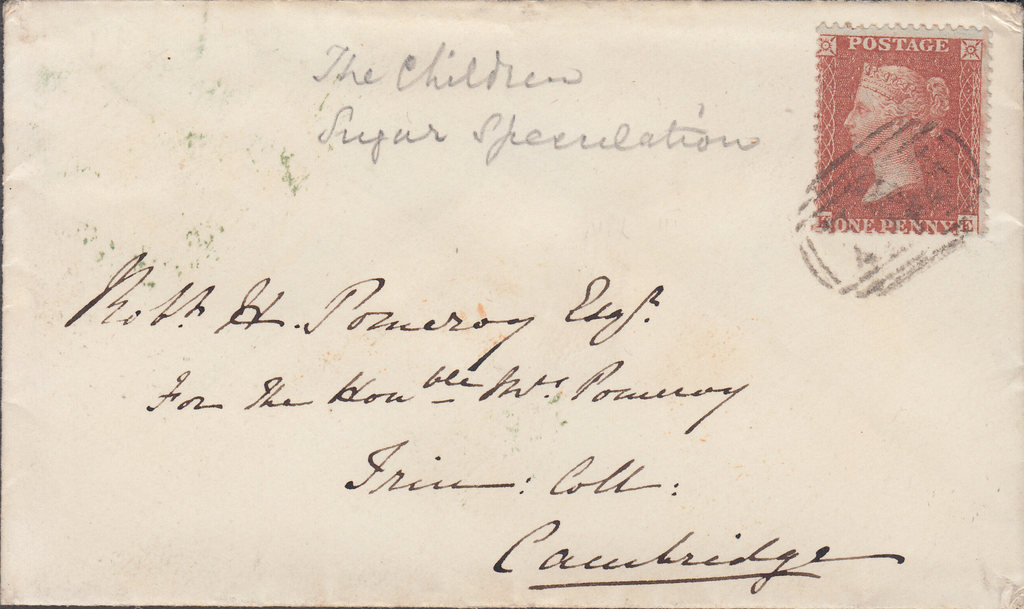 POSTAGE
The Children
Sugar Speculation
ONE PENNY
Robt. H. Pomeroy Esqr.
For the Honble Mrs. Pomeroy
Trin: Coll:
Cambridge